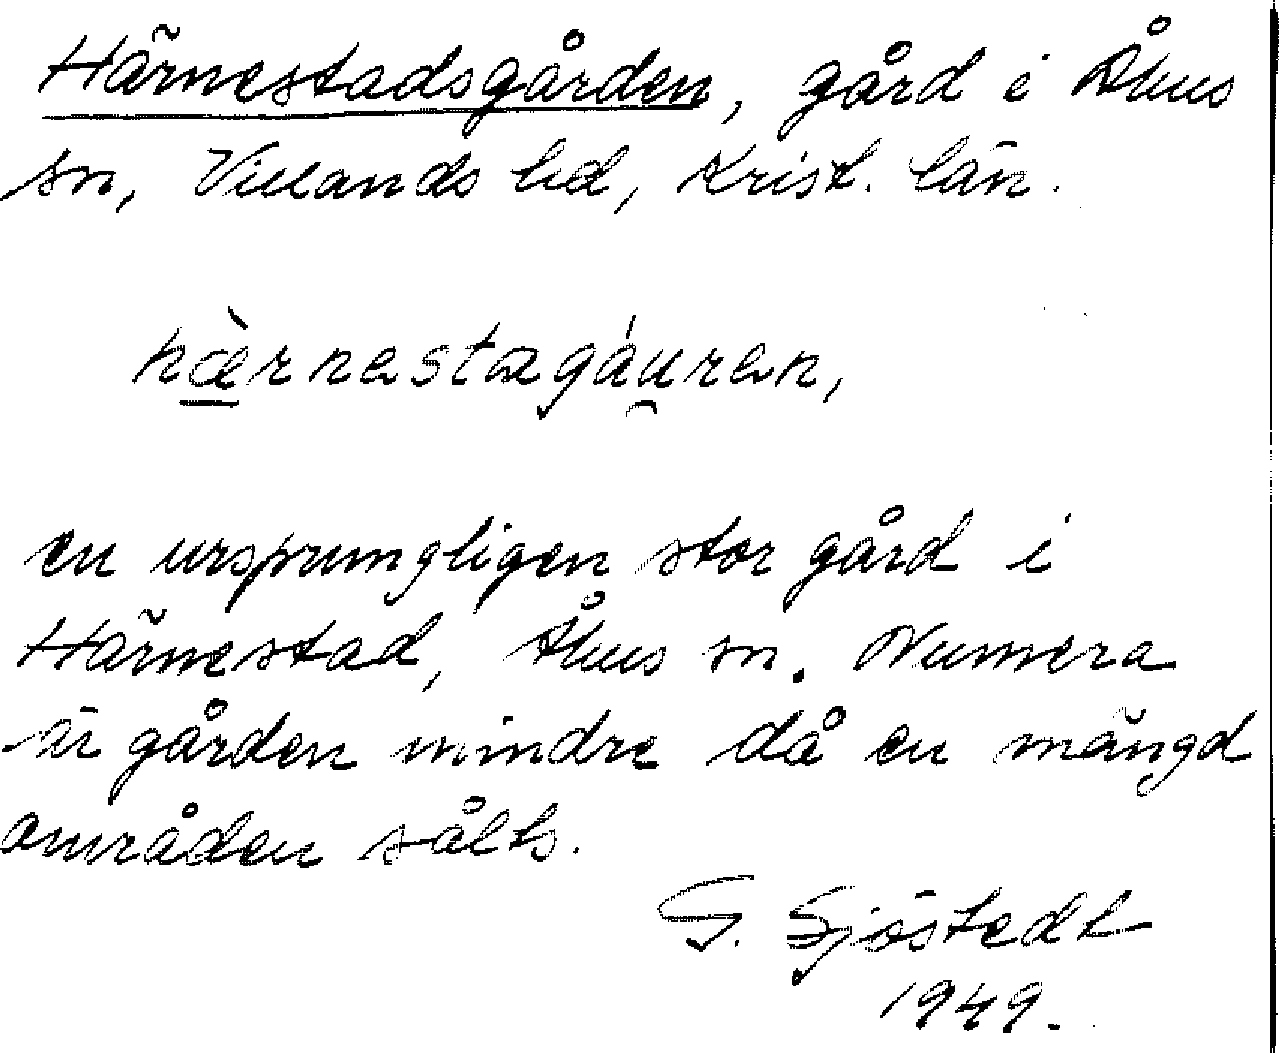 Härnestadsgården, gård i Åhus
sn, Villands hd, Krist. län.
hæ̀rnestagáu̯ren,
en ursprungligen stor gård i
Härnestad, Åhus sn. Numera
är gården mindre då en mängd
områden sålts.
G. Sjöstedt
1949.